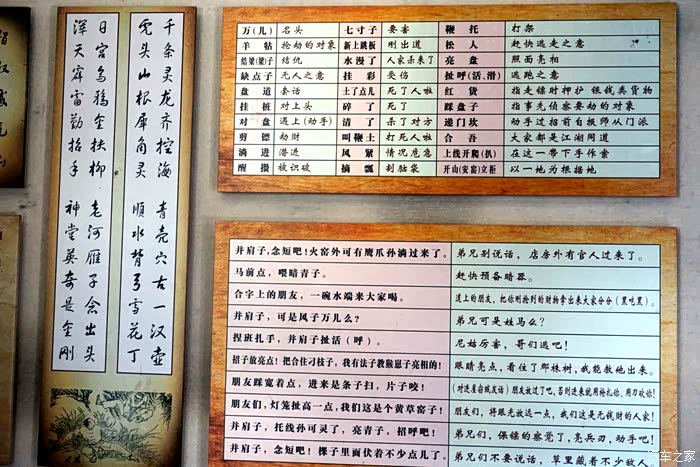 千条灵龙齐控海 青壳穴古一汉壶
兜头山根犀角灵 順水臂弓雪花丁
日宫乌鸦金扶柳 老河雁子念出头
浑天霹雷勤招手 神堂英奇是金刚
万(儿) 名头 七寸子 要害 鞭托 打架
羊牯 抢劫的对象 新上跳板 刚出道 松人 赶快逃走之意
结梁(梁)子 结仇 水漫了 人家杀来了 亮盘 照面亮相
缺点子 无人之意 挂彩 受伤 扯呼(活,滑) 逃跑之意
盘道 套话 土了点儿 死了人啦 红货 指走镖时押护 银钱类货物
挂桩 对上头 碎了 死了 踩盘子 指事先侦察要劫的对象
对盘 遇上(动手) 清了 杀了对方 递门坎 动手过招前自报师从门派
剪镖 劫财 叫鞭土 打死人啦 合吾 大家都是江湖同道
淌进 潜进 风紧 情况危急 上线开爬(扒) 在这一带下手作案
醒攒 被识破 摘瓢 割脑袋 开山(安窑)立柜 以一地为根据地
并肩子,念短吧!火窑外可有鹰爪孙淌过来了。 弟兄别说话,店房外有官人过来了。
马前点,喂暗青子。 赶快预备暗器。
合字上的朋友,一碗水端来大家喝。 道上的朋友,把你刚抢到的财物拿出来大家分分(黑吃黑)。
并肩子,可是风子万儿么? 弟兄可是姓马么?
捏班扎手,并肩子扯活(呼)。 尼姑厉害,哥们逃吧!
招子放亮点!把合住刁枝子,我有法子教猴崽子亮相的! 眼睛亮点,看住了那株树,我能教他出来。
朋友踩宽着点,进来是条子扫,片子咬! (对进屋窃贼发话)朋友放过了吧,否则进来就用枪扎你,用刀砍你!
朋友们,灯笼扯高一点,我们这是个黄草窑子! 朋友们,将眼光放远一点,我们这是无钱财的人家!
并肩子,托线孙可灵了,亮青子,招呼吧! 弟兄们,保镖的察觉了,亮兵刃,动手吧!
并肩子,念短吧!棵子里面伏着不少点儿了。 弟兄们不要说话,草里藏着不少敌人
汽车之家